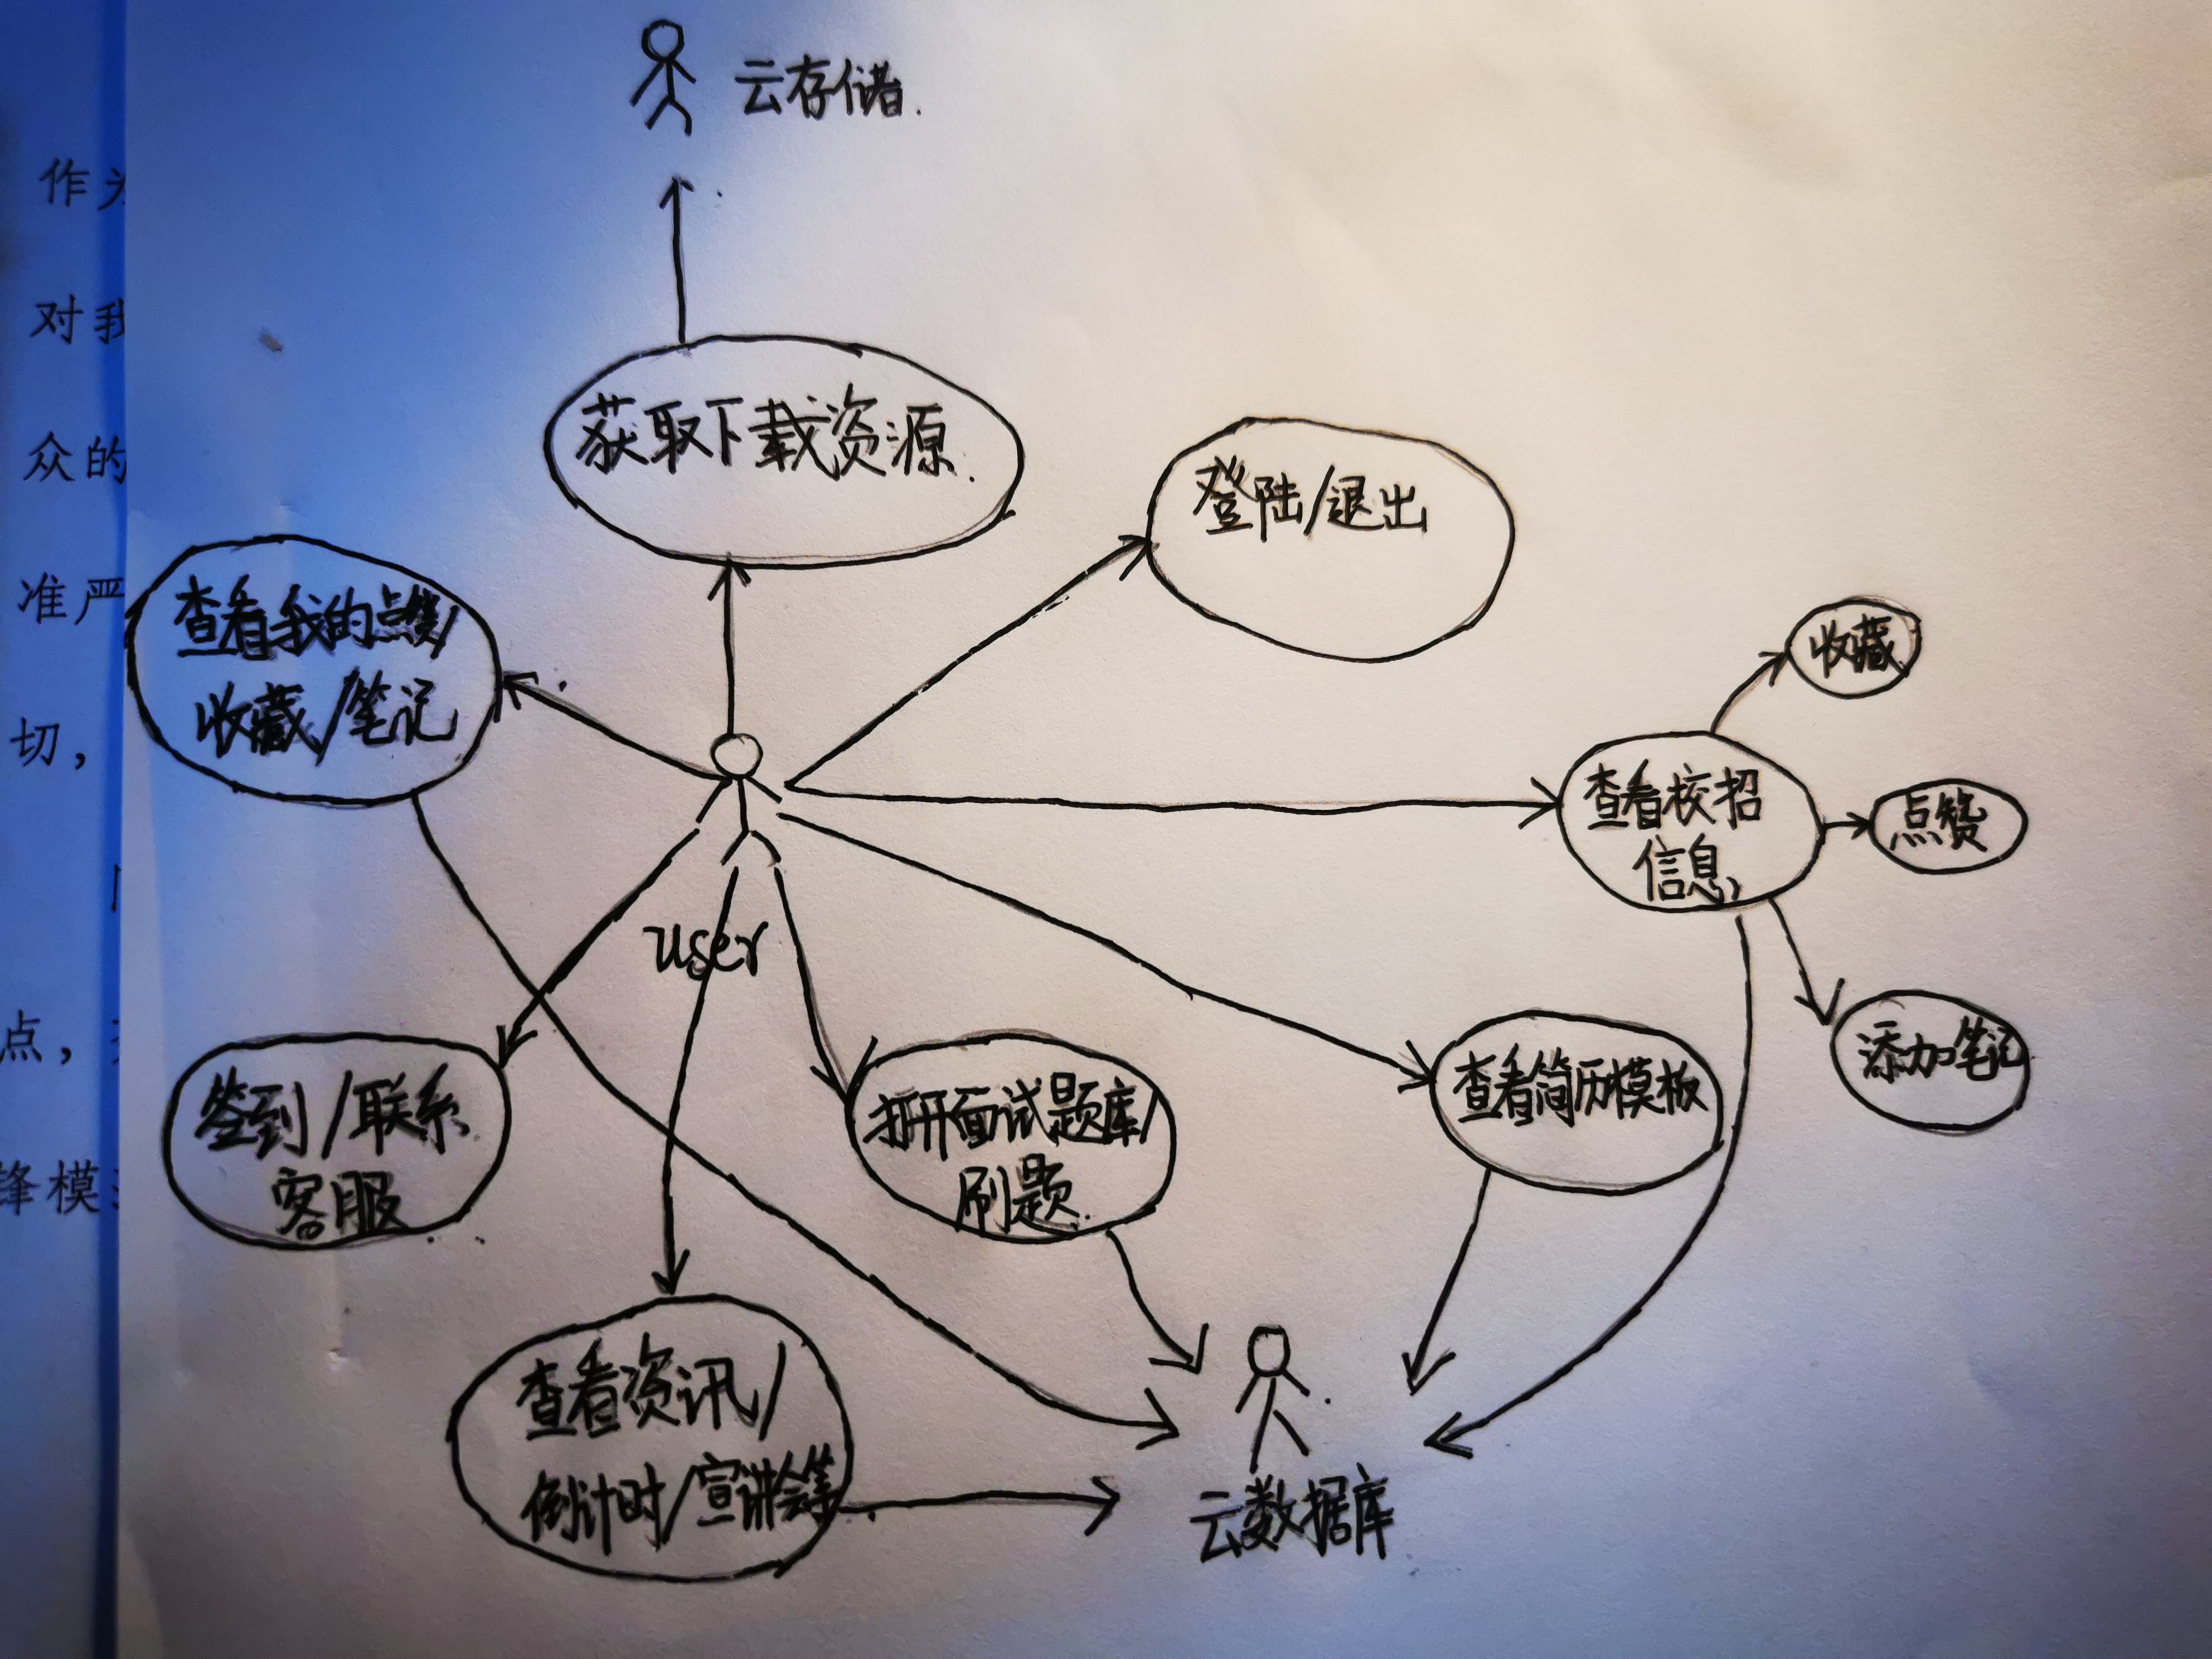 云存储.
作
对我
众的
准严
切，
点，
锋模
获取下载资源.
登陆/退出
查看我的点赞/
收藏/笔记
收藏
查看校招
信息
点赞
user
添加笔记
签到/联系
客服
打开面试题库/
刷题
查看简历模板
查看资讯/
倒计时/宣讲会等
云数据库